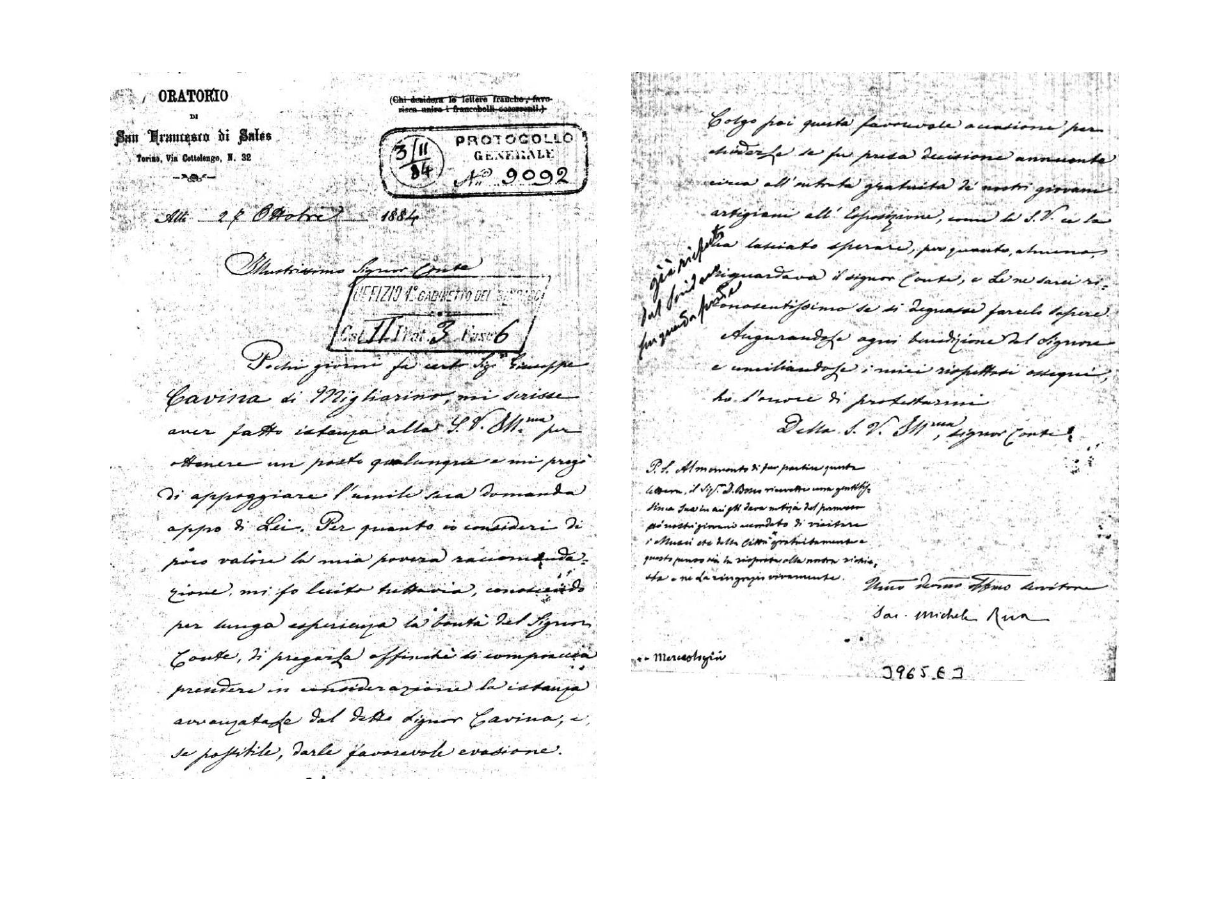 ORATORIO
DI
San Francesco di Sales
Torino, Via Cottolengo, N. 32
(Chi desidera le lettere franche, favo-
risca unire i francobolli occorrenti.)
PROTOCOLLO
GENERALE
3/11
84
N.° 9092
Alli 27 Ottobre 1884
Illustrissimo Signor Conte
UFFIZIO 1° GABINETTO DEL SINDACO
Cat. II Prat. 3 Fasc. 6
Pochi giorni fa certo Sig.r Giuseppe
Cavina di Migliarino, mi scrisse
aver fatto istanza alla S. V. Ill.ma per
ottenere un posto qualunque e mi pregò
di appoggiare l'umile sua domanda
appo di Lei. Per quanto io consideri di
poco valore la mia povera raccomanda-
zione, mi fo lecito tuttavia, conoscendo
per lunga esperienza la bontà del Signor
Conte, di pregarLa affinchè si compiaccia
prendere in considerazione la istanza
avanzataLe dal detto Signor Cavina, e,
se possibile, darle favorevole evasione.
Colgo poi questa favorevole occasione per
chiederLe se fu presa decisione annuente
circa all'entrata gratuita di nostri giovani
artigiani all'Esposizione, come la S. V. ce la
ha lasciato sperare, per quanto, almeno
riguardava il signor Conte, e Le ne sarei ri-
conoscentissimo se si degnasse farcelo sapere
AugurandoLe ogni benedizione del Signore
e umiliandoLe i miei rispettosi ossequi,
ho l'onore di protestarmi
Della S. V. Ill.ma, signor Conte
già
P. S. Al momento di far partire questa
lettera, il Sig. D. Bosco ricevette una gentilis-
sima Sua in cui gli dava notizia del permesso
pei nostri giovani accordato di visitare
i Musei ecc della Città gratuitamente e
questo provvede in risposta alla nostra richie-
sta e ne La ringrazio vivamente.
servitore
Sac. Michele Rua
Merceologia
3965 E 3